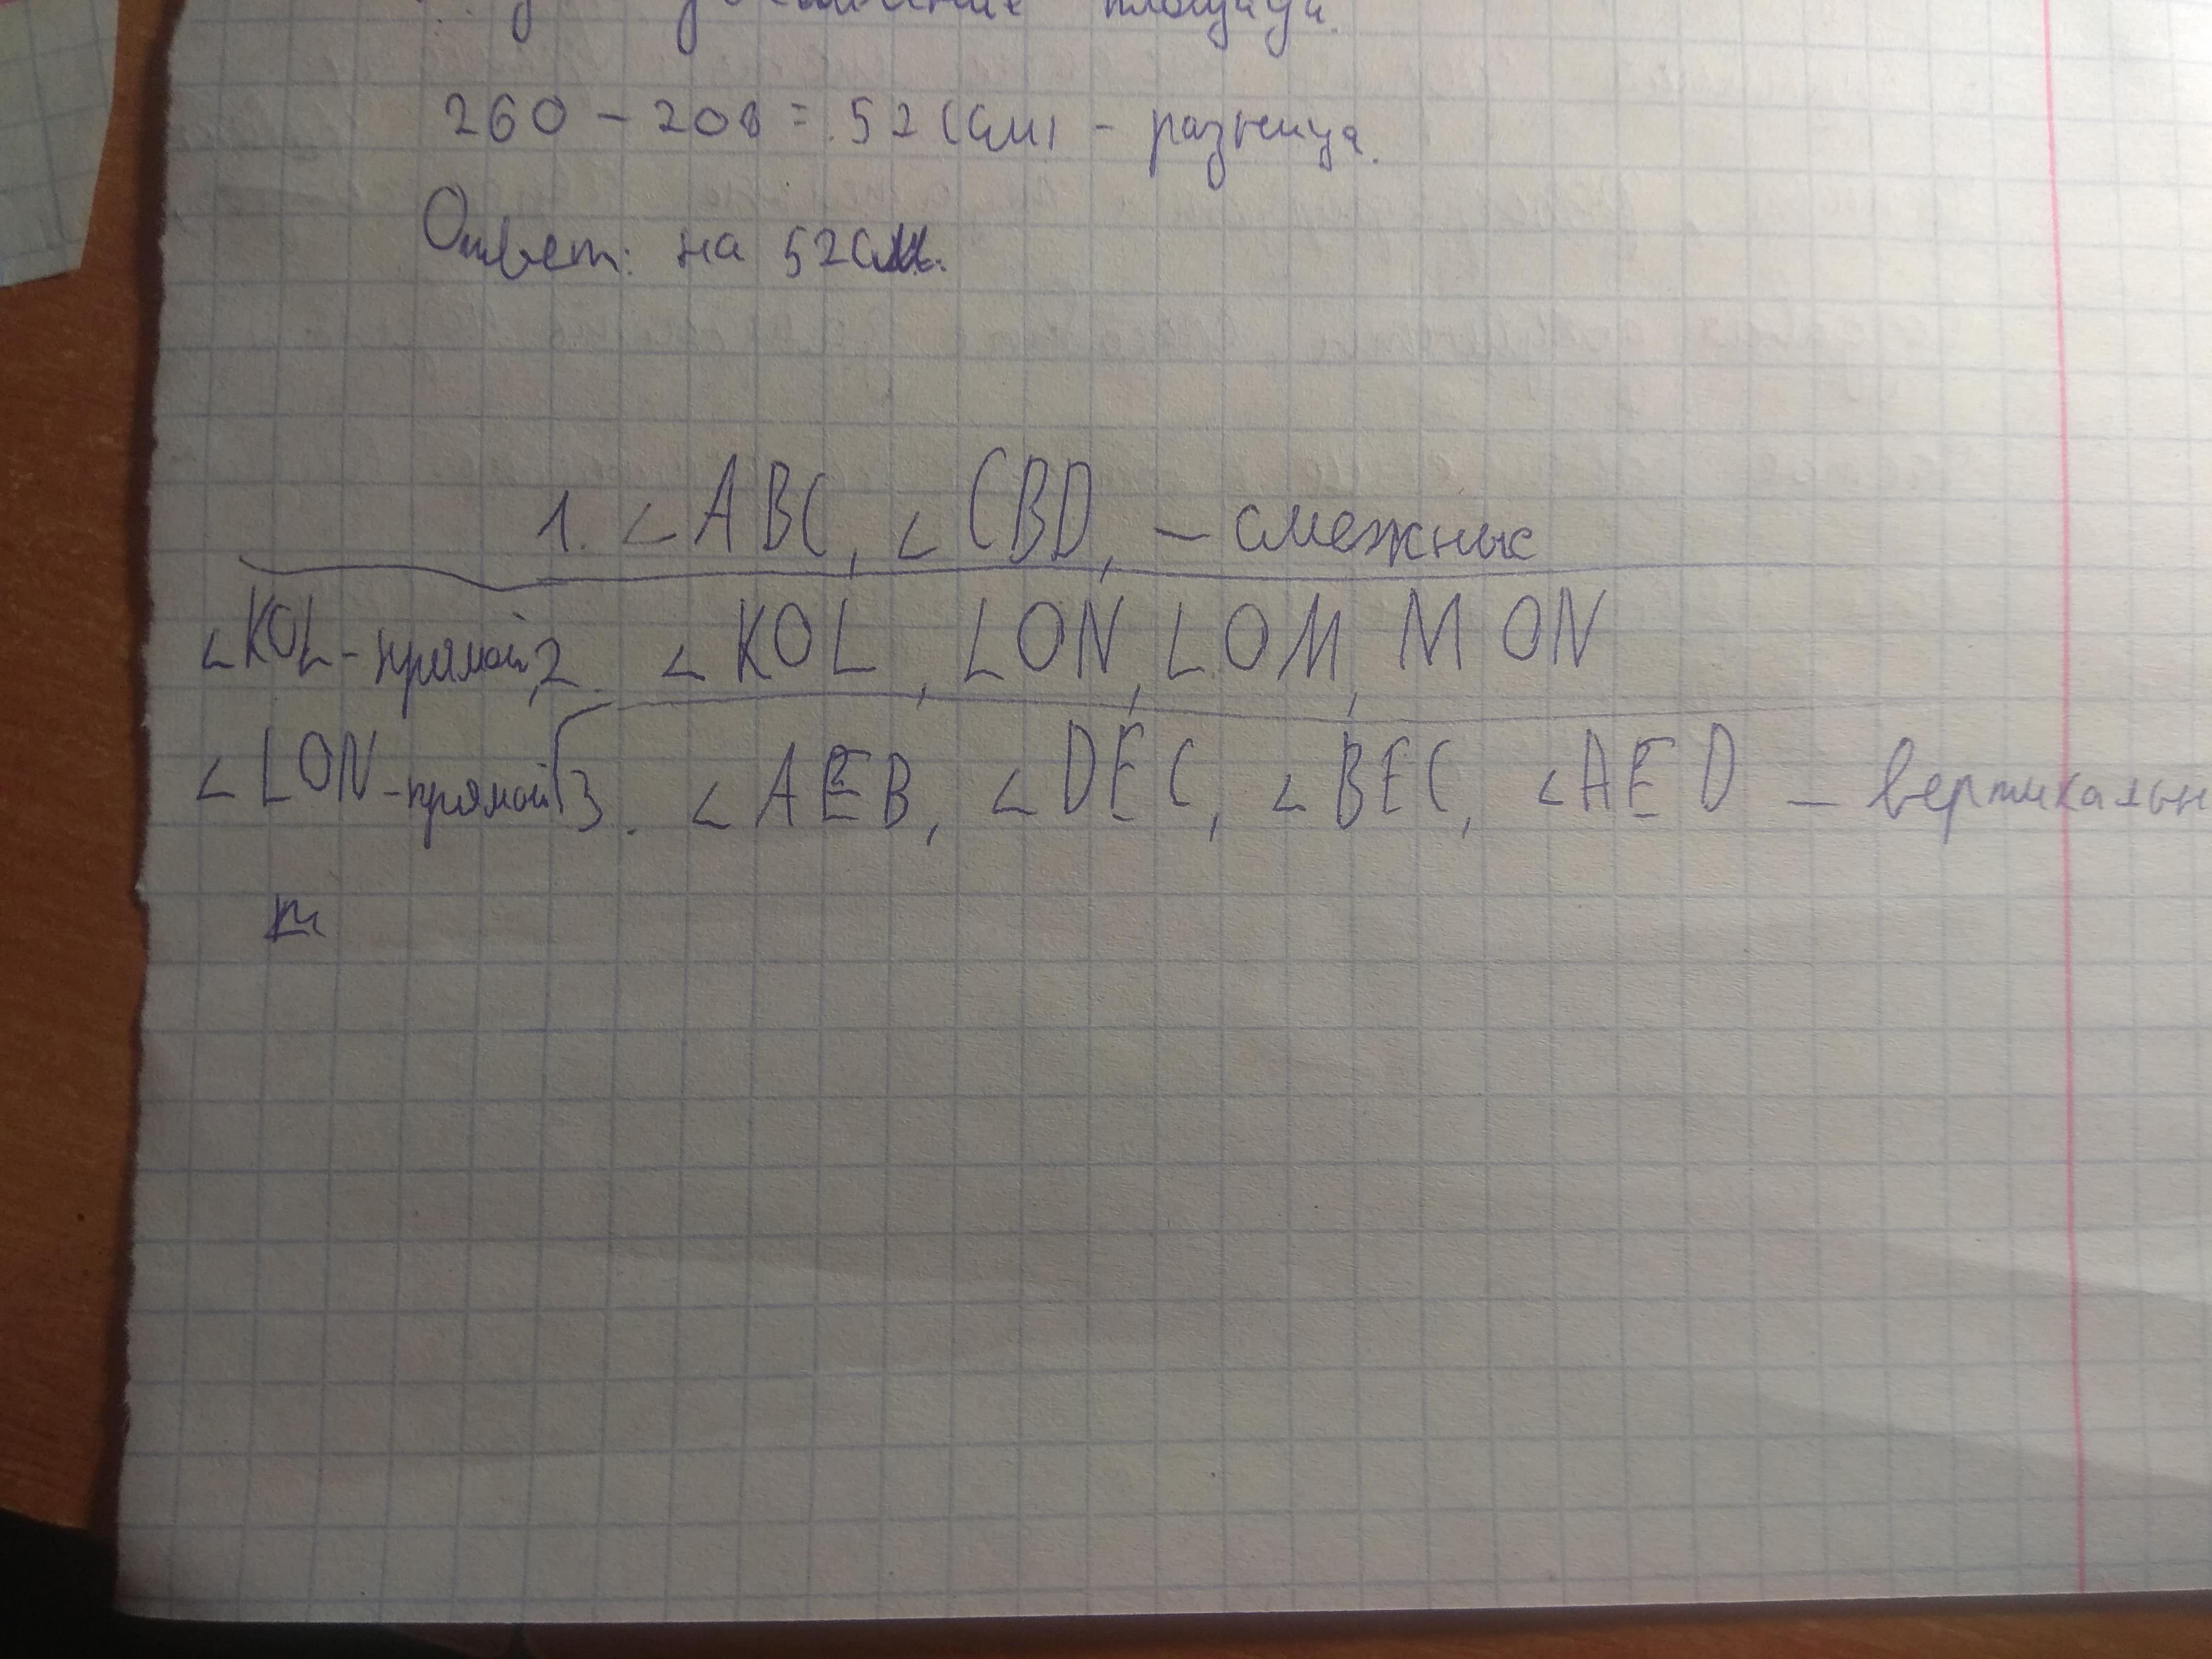 площади.
260 - 208 = 52 (см) - разница.
Ответ: на 52см.
1. ∠ABC, ∠CBD, - смежные
∠KOL - прямой, 2. ∠KOL, LON, LOM, MON
∠LON - прямой 3. ∠AEB, ∠DEC, ∠BEC, ∠AED - вертикальн